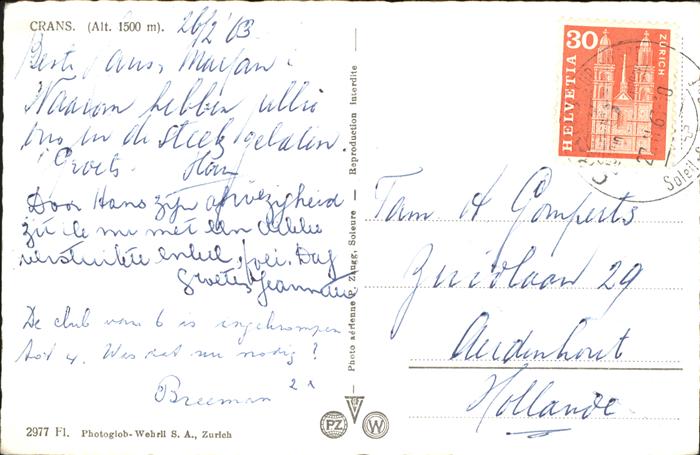 CRANS. (Alt. 1500 m). 26/2 '63
Beste Hans, Marjan:
Waarom hebben jullie
ons in de steek gelaten.
Groets Han
Door Hans zijn afwezigheid
zit ik nu met een dubbel
verstuikte enkel, foei. Dag
Groeten Jeannette
De club van 6 is ingekrompen
tot 4. Was dat nu nodig?
Breeman 2x
2977 Fl. Photoglob-Wehrli S. A., Zurich
Photo aérienne P. Zaugg, Soleure — Reproduction Interdite
PZ W
30
HELVETIA
ZÜRICH
Fam. H Gomperts
Zuidlaan 29
Aerdenhout
Hollande